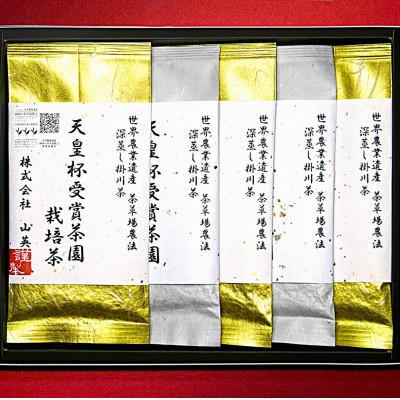 世界農業遺産 茶草場農法
深蒸し掛川茶
天皇杯受賞茶園
栽培茶
株式会社 山英
謹製
世界農業遺産 茶草場農法
深蒸し掛川茶
天皇杯受賞茶園
世界農業遺産 茶草場農法
深蒸し掛川茶
世界農業遺産 茶草場農法
深蒸し掛川茶
世界農業遺産 茶草場農法
深蒸し掛川茶